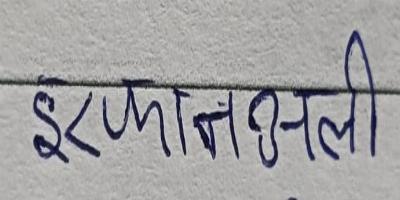 इरफानअली